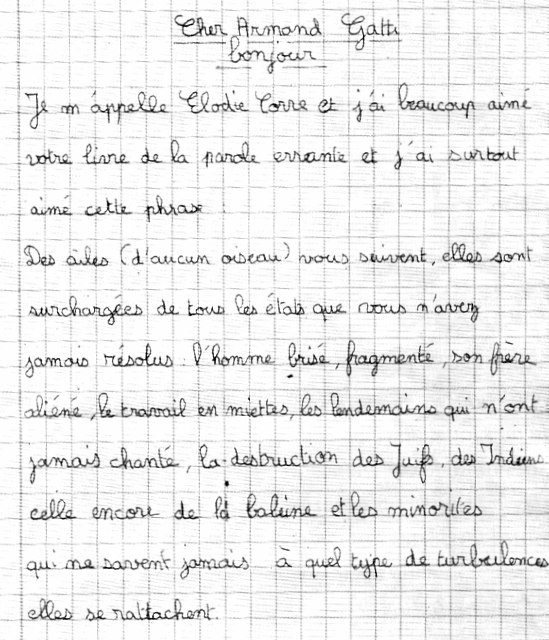 Cher Armand Gatti
bonjour
Je m'appelle Elodie Corre et j'ai beaucoup aimé
votre livre de la parole errante et j'ai surtout
aimé cette phrase :
Des ailes (d'aucun oiseau) vous suivent, elles sont
surchargées de tous les états que vous n'avez
jamais résolus : l'homme brisé, fragmenté, son frère
aliéné, le travail en miettes, les lendemains qui n'ont
jamais chanté, la destruction des Juifs, des Indiens
celle encore de la baleine et les minorités
qui ne savent jamais à quel type de turbulences
elles se rattachent.